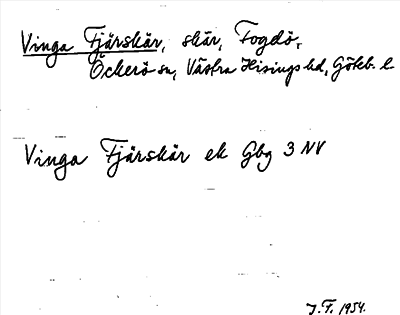 Vinga Fjärskär, skär, Fogdö,
Öckerö sn, Västra Hisings hd, Göteb. l.
Vinga Fjärskär ek Gbg 3 NV
J.F. 1954.